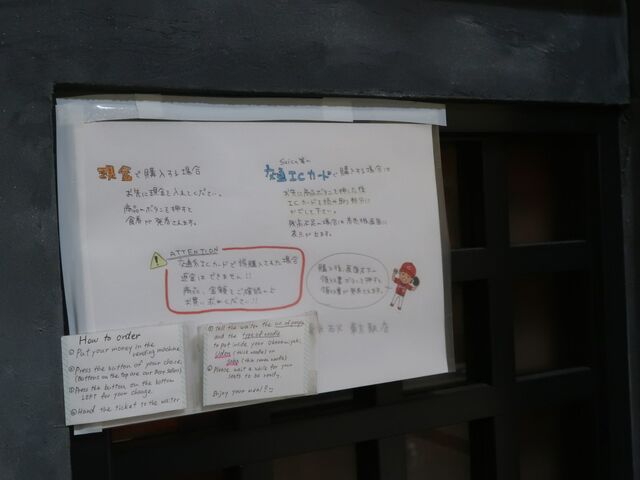 現金で購入する場合
お先に現金を入れてください。
商品のボタンを押すと
食券が発券されます。
Suica等の
交通ICカードで購入する場合は
お先に商品ボタンを押した後
ICカードを読み取り部分に
かざして下さい。
残高不足の場合は券売機画面に
表示が出ます。
ATTENTION
交通系ICカードで ご購入された場合
返金はできません!!
商品、金額をご確認の上
お買い求めください!!
購入後、画面
押すと
領収書が発券されます。
How to order
① Put your money in the
vending machine
② Press the button of your choice.
(Buttons on the top are our Best Sellers)
③ Press the button on the bottom
LEFT for your change.
④ Hand the ticket to the waiter
⑤ Tell the waiter the
and the type of noodle
to put inside your Okonomiyaki.
Udon (thick noodle) or
Soba (thin noodle)
⑥ Please wait a while for your
seats to be ready.
Enjoy your meal!